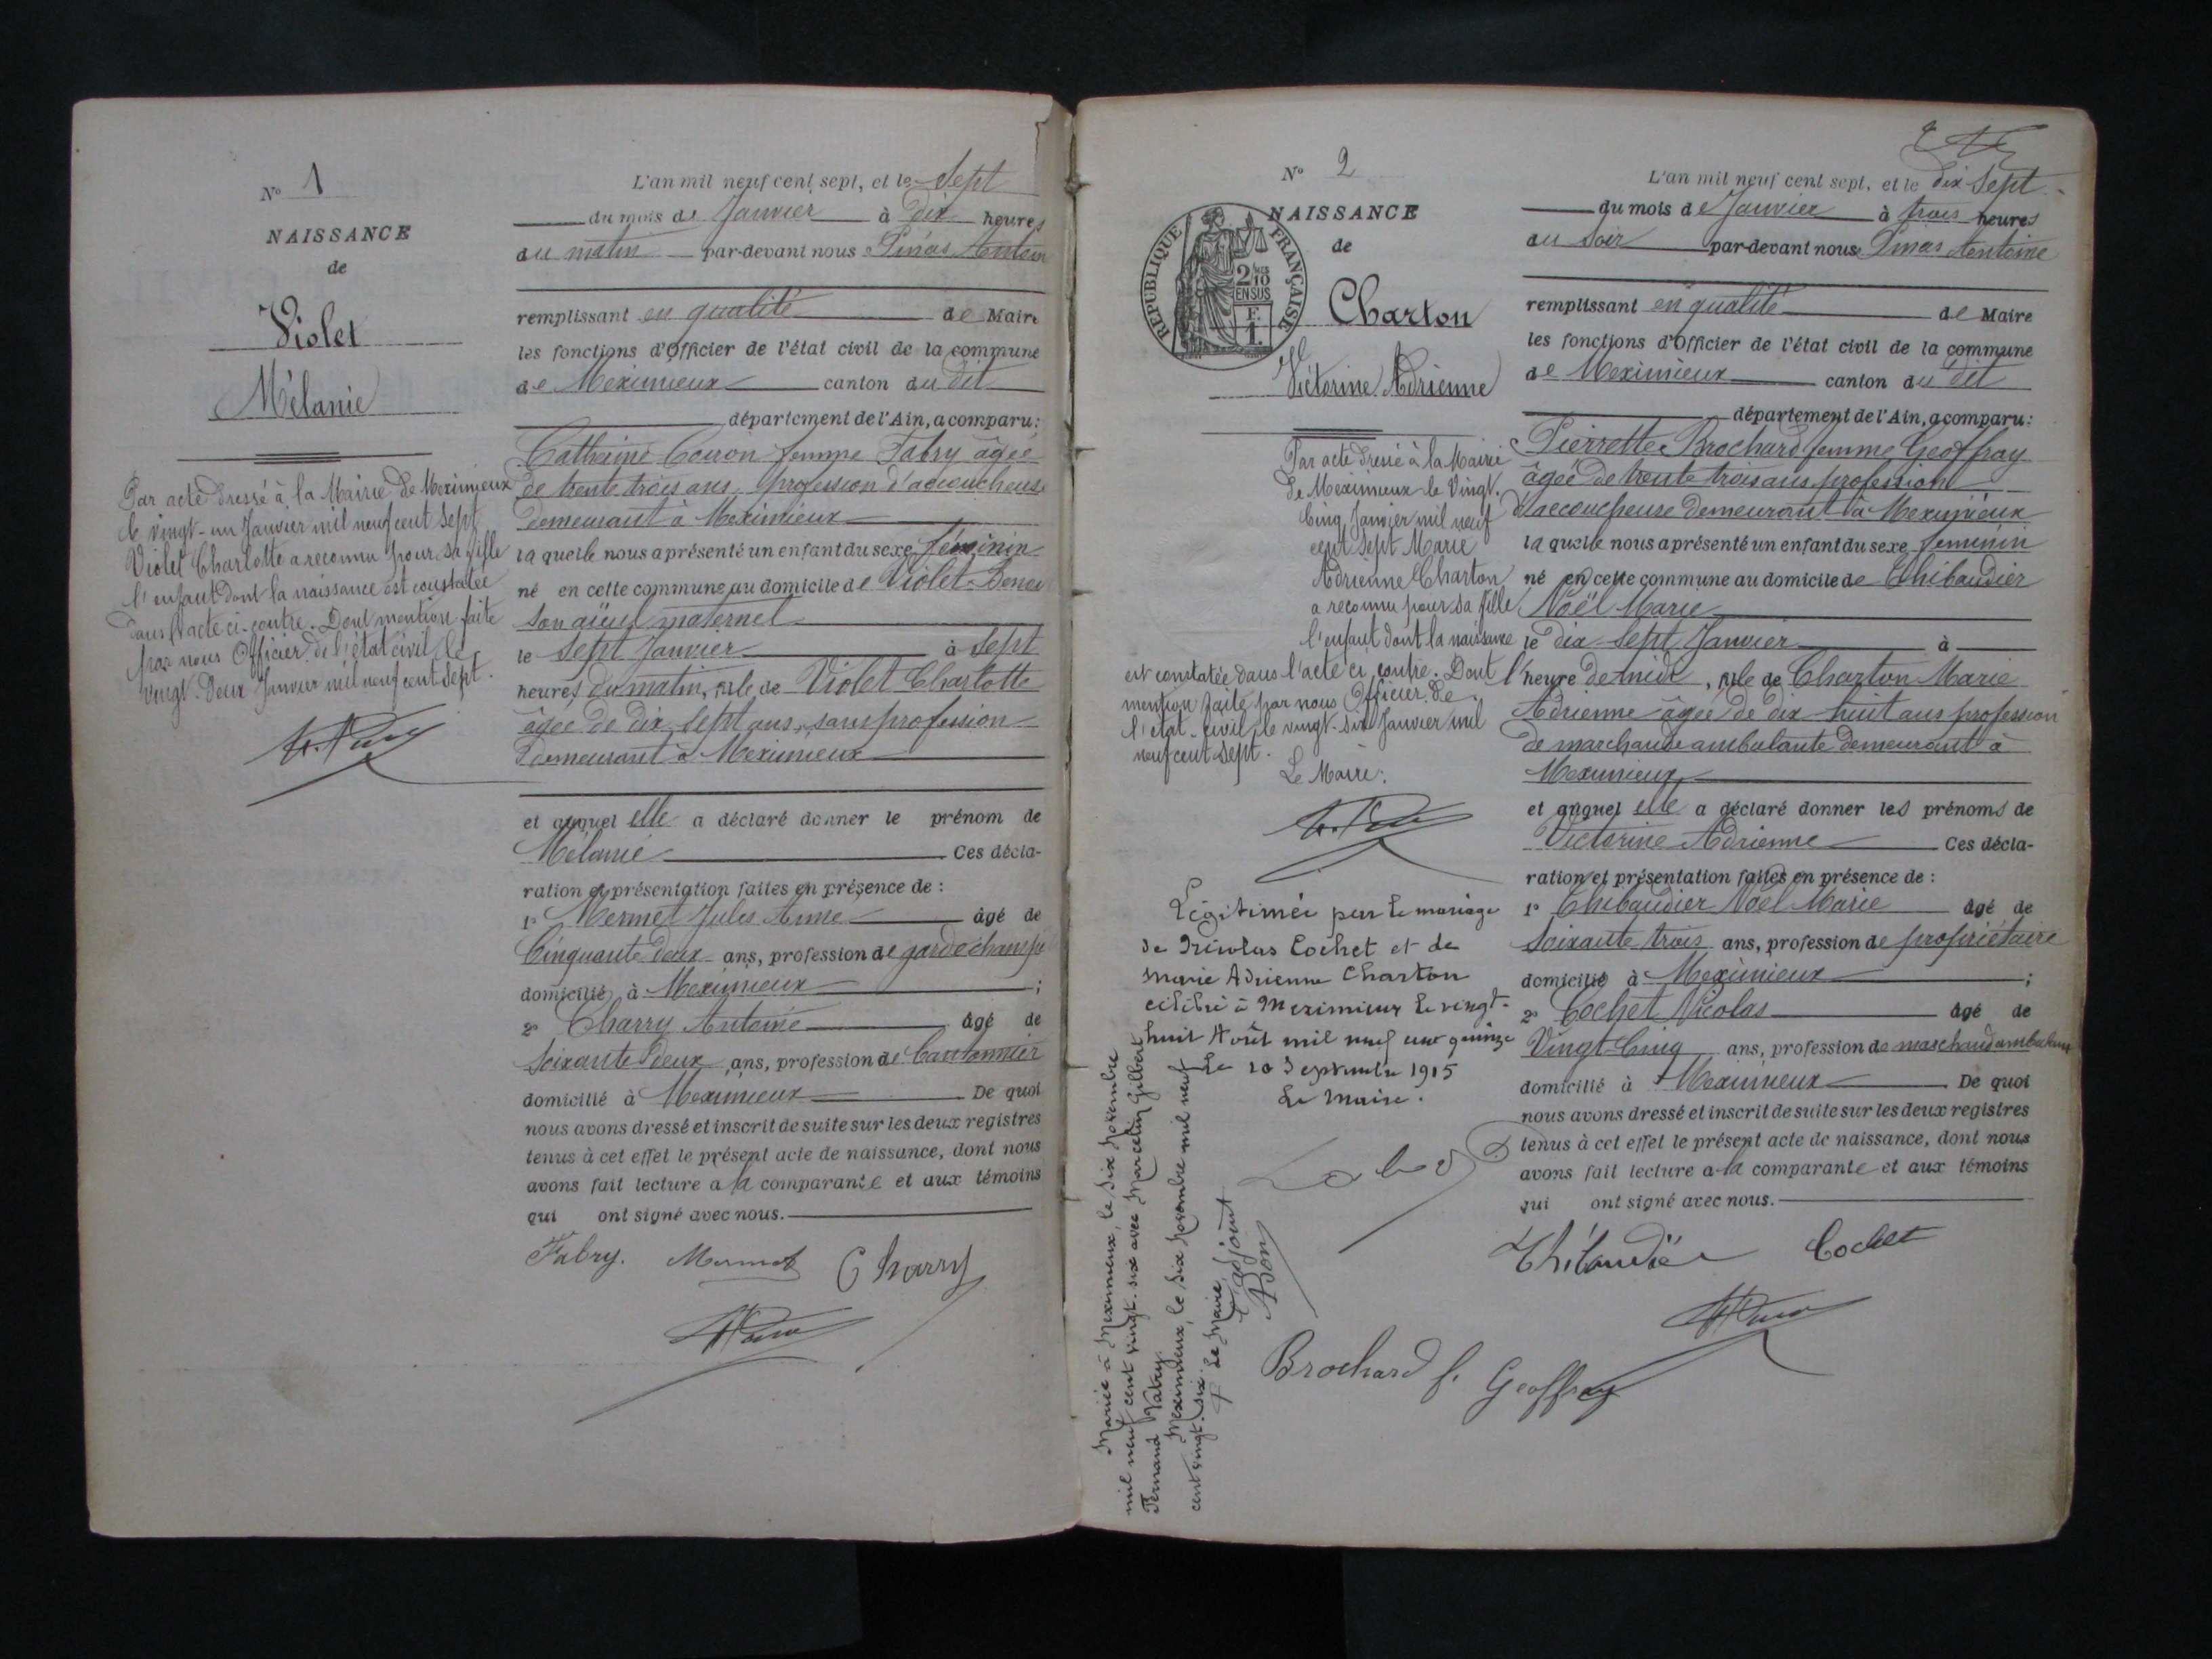 N° 1
NAISSANCE
de
Violet
Mélanie
Par acte dressé à la Mairie de Meximieux
le vingt-un Janvier mil neuf cent sept
Violet Charlotte a reconnu pour sa fille
l'enfant dont la naissance est constatée
dans l'acte ci-contre. Dont mention faite
par nous Officier de l'état civil le
vingt-deux Janvier mil neuf cent sept.
L'an mil neuf cent sept, et le Sept
du mois de Janvier à dix heures
du matin par-devant nous Pinas Antoin
remplissant en qualité de Maire
les fonctions d'Officier de l'état civil de la commune
de Meximieux canton du dit
département de l'Ain, a comparu:
Catherine Coiron femme Fabry âgée
de trente trois ans, profession d'accoucheuse
demeurant à Meximieux
la quelle nous a présenté un enfant du sexe féminin
né en cette commune au domicile de Violet
son aïeul maternel
le Sept Janvier à Sept
heures du matin, fille de Violet Charlotte
âgée de dix sept ans, sans profession
demeurant à Meximieux
et auquel elle a déclaré donner le prénom de
Mélanie Ces décla-
ration et présentation faites en présence de :
1° Mermet Jules Aimé âgé de
Cinquante deux ans, profession de garde champe
domicilié à Meximieux ;
2° Charry Antoine âgé de
Soixante deux ans, profession de Cantonnier
domicilié à Meximieux De quoi
nous avons dressé et inscrit de suite sur les deux registres
tenus à cet effet le présent acte de naissance, dont nous
avons fait lecture a la comparante et aux témoins
qui ont signé avec nous.
Fabry. Mermet Charry
N° 2
NAISSANCE
de
REPUBLIQUE FRANÇAISE
2/10
EN SUS
F.
1.
Charton
Victorine Adrienne
Par acte dressé à la Mairie
de Meximieux le Vingt-
Cinq Janvier mil neuf
cent sept Marie
Adrienne Charton
a reconnu pour sa fille
l'enfant dont la naissance
est constatée dans l'acte ci contre. Dont
mention faite par nous Officier de
l'état-civil, le vingt-six Janvier mil
neuf cent sept.
Le Maire:
Légitimée par le mariage
de Nicolas Cochet et de
Marie Adrienne Charton
célébré à Meximieux le vingt-
huit Août mil neuf cent quinze
Le 10 Septembre 1915
Le Maire.
Mariée à Meximieux, le six Novembre
mil neuf cent vingt-six avec Marcelin Gilbert
Fernand Vabry.
Meximieux, le six Novembre mil neuf
cent vingt-six.
P Le Maire,
L'adjoint
Bon
L'an mil neuf cent sept, et le dix Sept
du mois de Janvier à trois heures
du Soir par-devant nous Pinas Antoine
remplissant en qualité de Maire
les fonctions d'Officier de l'état civil de la commune
de Meximieux canton du dit
département de l'Ain, a comparu:
Pierrette Brochard femme Geoffray
âgée de trente trois ans profession
d'accoucheuse demeurant à Meximieux
la quelle nous a présenté un enfant du sexe féminin
né en cette commune au domicile de Thibaudier
Noël Marie
le dix Sept Janvier à
l'heure de midi, fille de Charton Marie
Adrienne âgée de dix huit ans profession
de marchande ambulante demeurant à
Meximieux
et auquel elle a déclaré donner les prénoms de
Victorine Adrienne Ces décla-
ration et présentation faites en présence de :
1° Thibaudier Noël Marie âgé de
Soixante trois ans, profession de propriétaire
domicilié à Meximieux ;
2° Cochet Nicolas âgé de
Vingt-Cinq ans, profession de marchand ambulant
domicilié à Meximieux De quoi
nous avons dressé et inscrit de suite sur les deux registres
tenus à cet effet le présent acte de naissance, dont nous
avons fait lecture a la comparante et aux témoins
qui ont signé avec nous.
Thibaudier Cochet
Brochard f. Geoffray